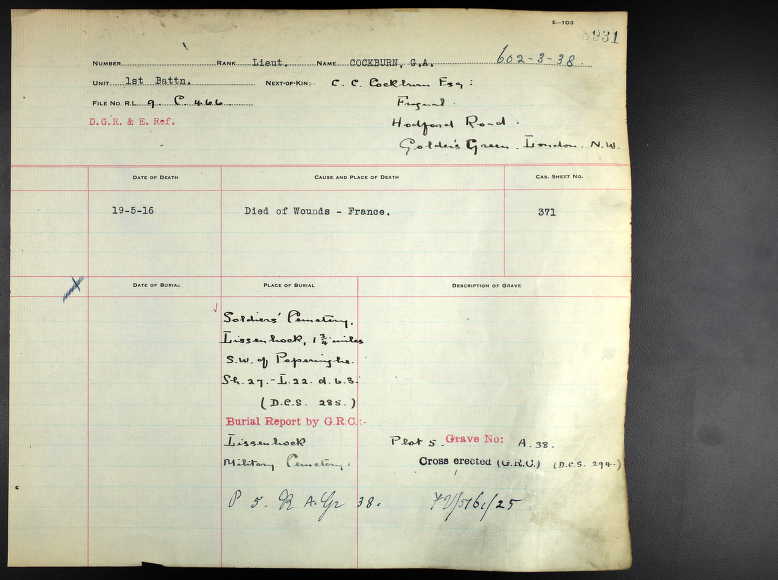 E—103
602-3-38.
NUMBER RANK Lieut. NAME COCKBURN, G.A.
UNIT 1st Battn. NEXT-OF-KIN:- C. C. Cockburn Esq:
FILE NO. R.L. 9. C. 466
D.G.R. & E. Ref. Hodford Road.
Golders Green. London. N.W.
DATE OF DEATH CAUSE AND PLACE OF DEATH CAS. SHEET NO.
19-5-16 Died of Wounds - France. 371
DATE OF BURIAL PLACE OF BURIAL DESCRIPTION OF GRAVE
Soldiers' Cemetery.
Lissenhoek, 1 3/4 miles
S.W. of Poperinghe.
Sh. 27.- L. 22. d. 6.3.
(D.C.S. 285.)
Burial Report by G.R.C.:-
Lissenhoek Plot 5. Grave No: A. 38.
Military Cemetery. Cross erected (G.R.C.) (D.C.S. 294.)
P 5. R A. Gr 38.